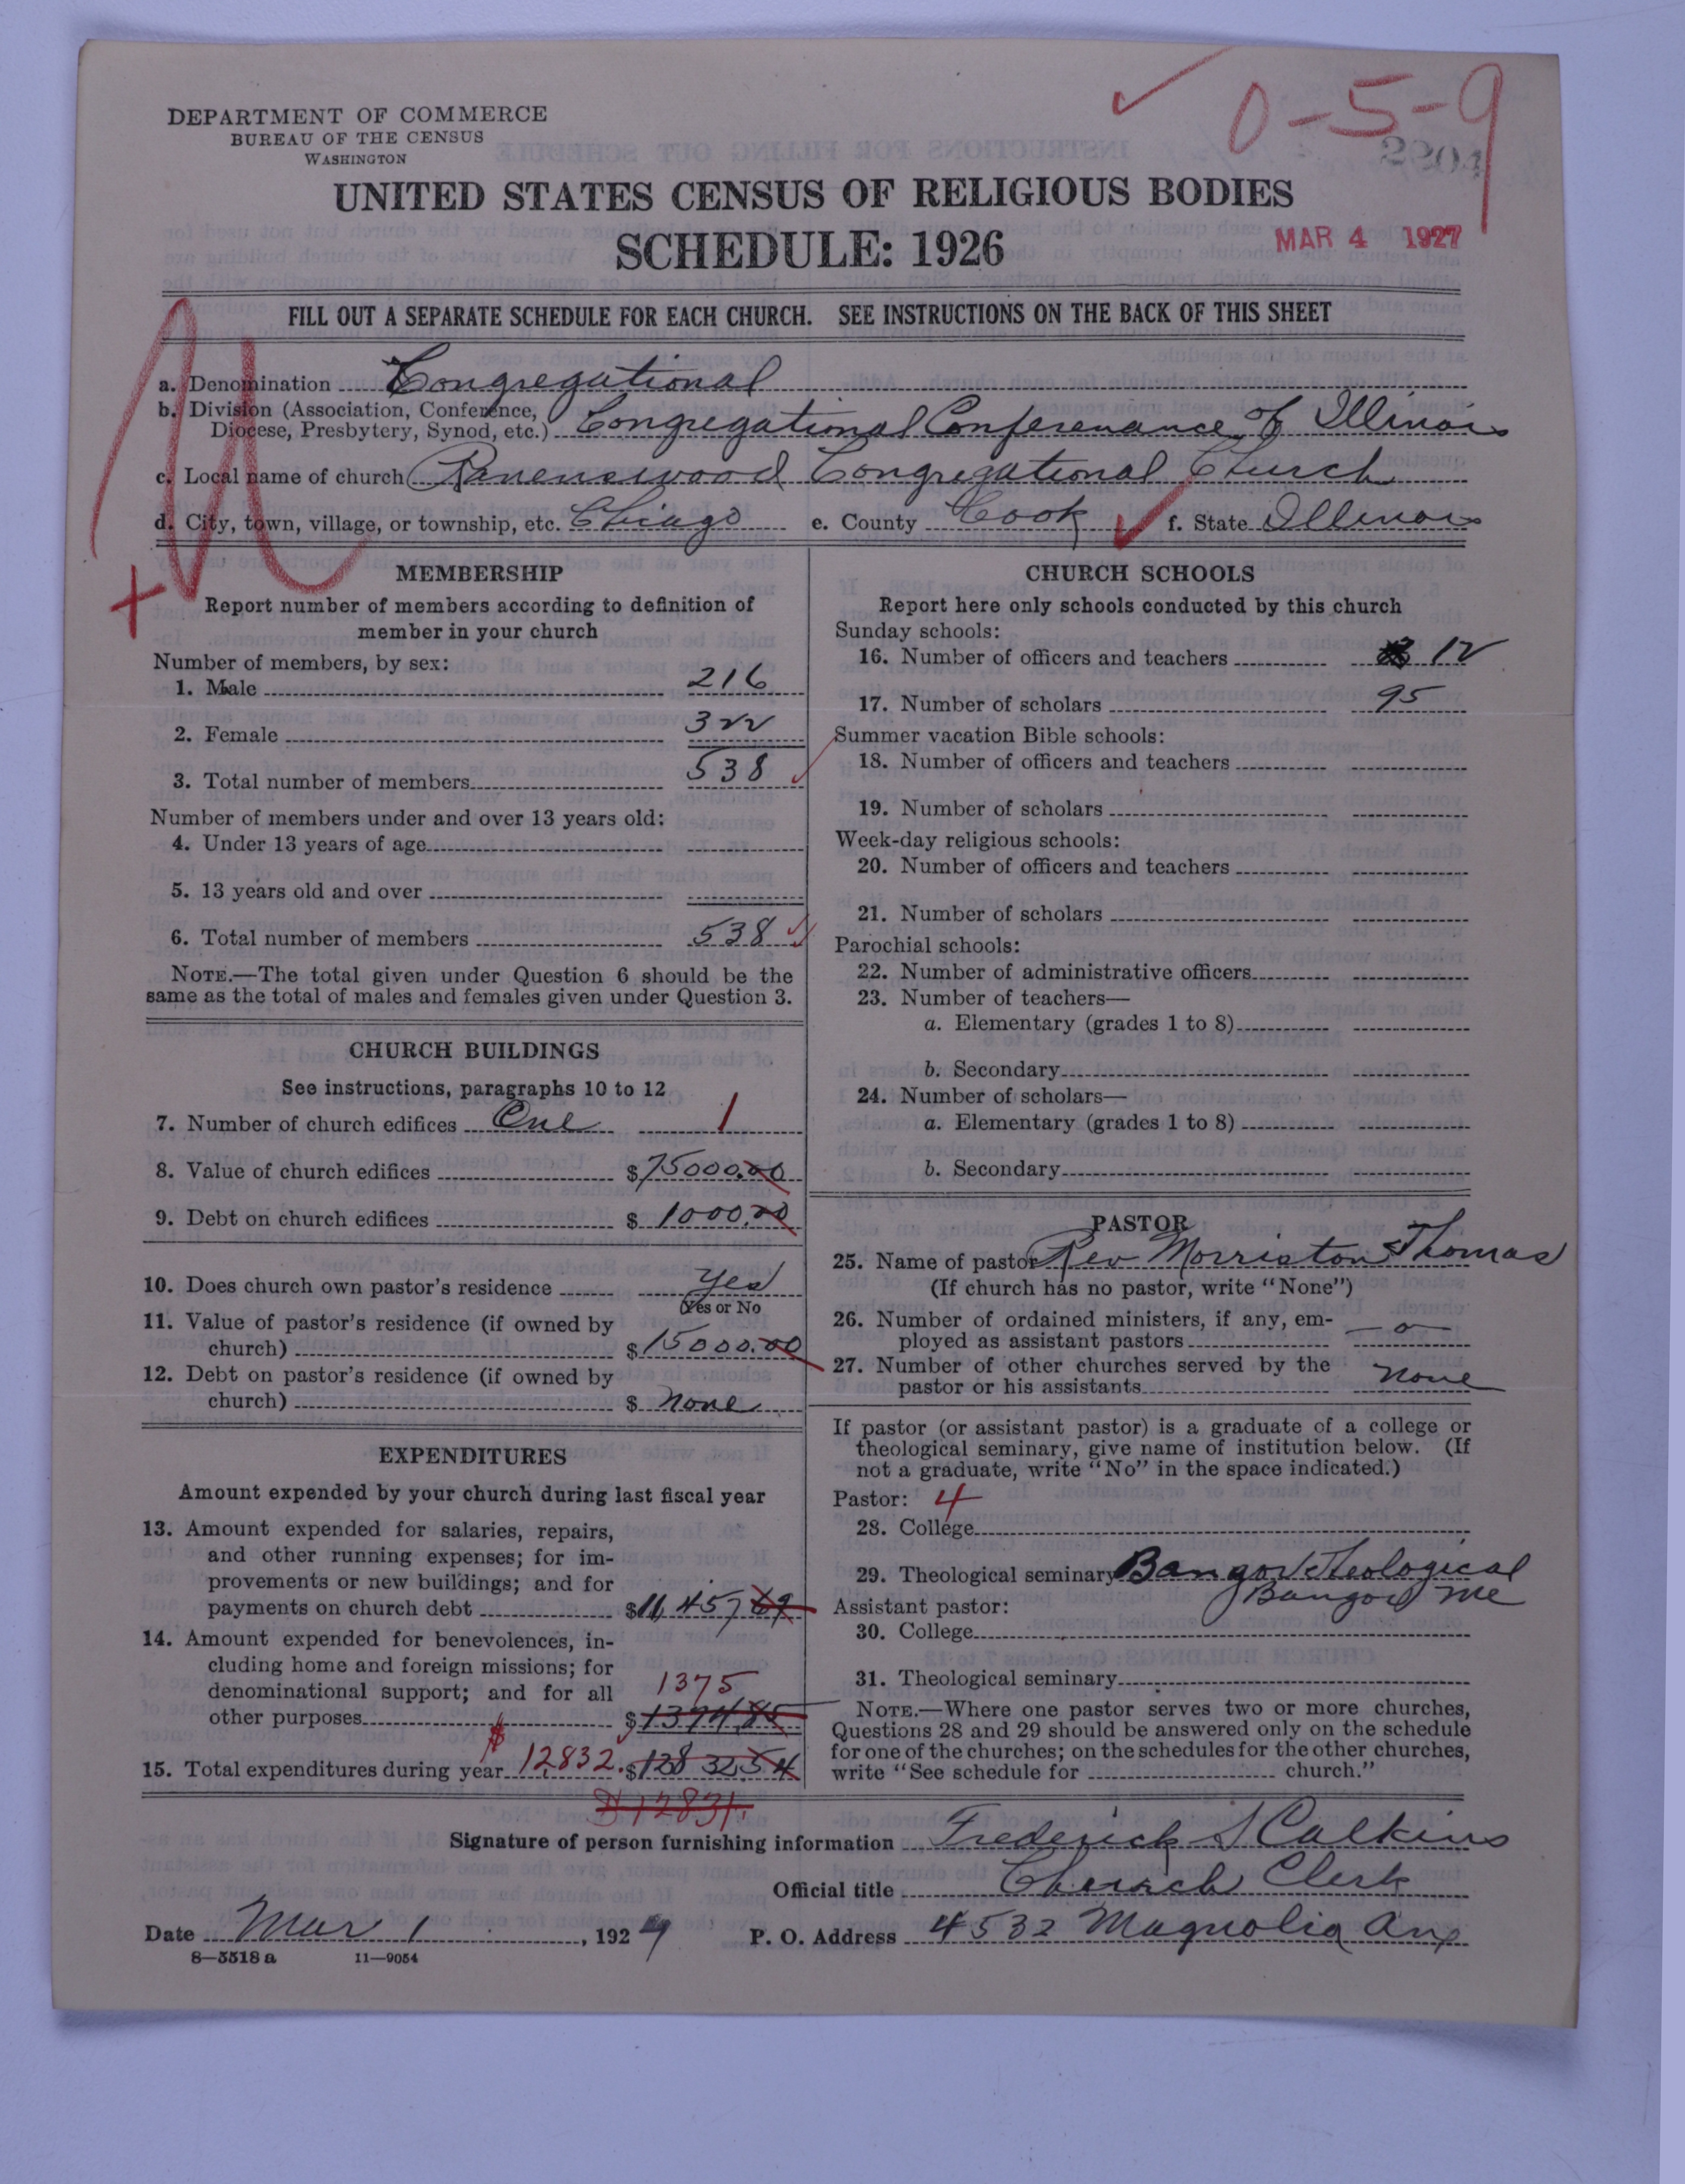 0-5-9
2204
DEPARTMENT OF COMMERCE
BUREAU OF THE CENSUS
WASHINGTON
UNITED STATES CENSUS OF RELIGIOUS BODIES
SCHEDULE: 1926
MAR 4 1927
FILL OUT A SEPARATE SCHEDULE FOR EACH CHURCH. SEE INSTRUCTIONS ON THE BACK OF THIS SHEET
a. Denomination Congregational
b. Division (Association, Conference,
Diocese, Presbytery, Synod, etc.) Congregational Conferenance of Illinois
c. Local name of church Ravenswood Congregational Church
d. City, town, village, or township, etc. Chiago e. County Cook f. State Illinois
MEMBERSHIP
Report number of members according to definition of
member in your church
Number of members, by sex:
1. Male 216
2. Female 322
3. Total number of members 538
Number of members under and over 13 years old:
4. Under 13 years of age
5. 13 years old and over
6. Total number of members 538
NOTE.—The total given under Question 6 should be the
same as the total of males and females given under Question 3.
CHURCH BUILDINGS
See instructions, paragraphs 10 to 12
7. Number of church edifices One 1
8. Value of church edifices $75000.00
9. Debt on church edifices $ 1000.00
10. Does church own pastor's residence Yes
(Yes or No
11. Value of pastor's residence (if owned by
church) $15000.00
12. Debt on pastor's residence (if owned by
church) $ none
EXPENDITURES
Amount expended by your church during last fiscal year
13. Amount expended for salaries, repairs,
and other running expenses; for im-
provements or new buildings; and for
payments on church debt $11,457 69
14. Amount expended for benevolences, in-
cluding home and foreign missions; for
denominational support; and for all 1375
other purposes $1374.85
15. Total expenditures during year $12,832. $12832.54
$12831.
CHURCH SCHOOLS
Report here only schools conducted by this church
Sunday schools:
16. Number of officers and teachers 12
17. Number of scholars 95
Summer vacation Bible schools:
18. Number of officers and teachers
19. Number of scholars
Week-day religious schools:
20. Number of officers and teachers
21. Number of scholars
Parochial schools:
22. Number of administrative officers
23. Number of teachers—
a. Elementary (grades 1 to 8)
b. Secondary
24. Number of scholars—
a. Elementary (grades 1 to 8)
b. Secondary
PASTOR
25. Name of pastor Rev Morriston Thomas
(If church has no pastor, write "None")
26. Number of ordained ministers, if any, em-
ployed as assistant pastors — o —
27. Number of other churches served by the
pastor or his assistants none
If pastor (or assistant pastor) is a graduate of a college or
theological seminary, give name of institution below. (If
not a graduate, write "No" in the space indicated.)
Pastor: 4
28. College
29. Theological seminary Bangor Theological
Bangor Me
Assistant pastor:
30. College
31. Theological seminary
NOTE.—Where one pastor serves two or more churches,
Questions 28 and 29 should be answered only on the schedule
for one of the churches; on the schedules for the other churches,
write "See schedule for church."
Signature of person furnishing information Frederick S Calkins
Official title Church Clerk
Date Mar 1, 1927 P. O. Address 4532 Magnolia Ave
8—5518 a 11—9054